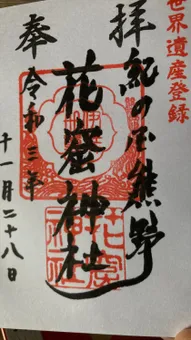 世界遺産登録
奉拝
紀の国熊野
花窟神社
令和三年
十一月二十八日